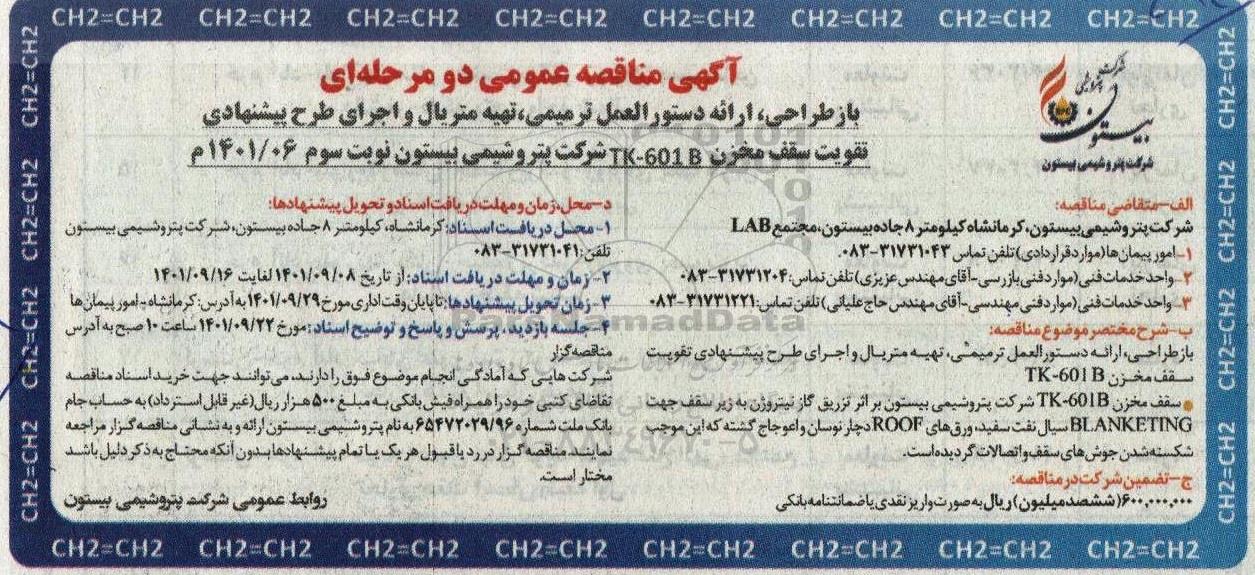 CH2=CH2 CH2=CH2 CH2=CH2 CH2=CH2 CH2=CH2 CH2=CH2 CH2=CH2 CH2=CH2
شرکت پتروشیمی بیستون
آگهی مناقصه عمومی دو مرحله‌ای
بازطراحی، ارائه دستورالعمل ترمیمی، تهیه متریال و اجرای طرح پیشنهادی
تقویت سقف مخزن TK-601 B شرکت پتروشیمی بیستون نوبت سوم ۱۴۰۱/۰۶م
الف-متقاضی مناقصه:
شرکت پتروشیمی بیستون، کرمانشاه کیلومتر ۸ جاده بیستون، مجتمع LAB
۱- امور پیمان ها (موارد قراردادی) تلفن تماس ۳۱۷۳۱۰۴۳-۰۸۳
۲- واحد خدمات فنی (موارد فنی بازرسی-آقای مهندس عزیزی) تلفن تماس: ۳۱۷۳۱۲۰۴-۰۸۳
۳- واحد خدمات فنی (موارد فنی مهندسی-آقای مهندس حاج علیانی) تلفن تماس: ۳۱۷۳۱۲۲۱-۰۸۳
ب-شرح مختصر موضوع مناقصه:
بازطراحی، ارائه دستورالعمل ترمیمی، تهیه متریال و اجرای طرح پیشنهادی تقویت
سقف مخزن TK-601 B
● سقف مخزن TK-601B شرکت پتروشیمی بیستون بر اثر تزریق گاز نیتروژن به زیر سقف جهت
BLANKETING سیال نفت سفید، ورق های ROOF دچار نوسان و اعوجاج گشته که این موجب
شکسته شدن جوش های سقف و اتصالات گردیده است.
ج-تضمین شرکت در مناقصه:
۶۰۰,۰۰۰,۰۰۰ (ششصد میلیون) ریال به صورت واریز نقدی یا ضمانتنامه بانکی
د-محل، زمان و مهلت دریافت اسناد و تحویل پیشنهادها:
۱-محل دریافت اسناد: کرمانشاه، کیلومتر ۸ جاده بیستون، شرکت پتروشیمی بیستون
تلفن: ۳۱۷۳۱۰۴۱-۰۸۳
۲-زمان و مهلت دریافت اسناد: از تاریخ ۱۴۰۱/۰۹/۰۸ لغایت ۱۴۰۱/۰۹/۱۶
۳-زمان تحویل پیشنهادها: تا پایان وقت اداری مورخ ۱۴۰۱/۰۹/۲۹ به آدرس: کرمانشاه-امور پیمان ها
۴-جلسه بازدید، پرسش و پاسخ و توضیح اسناد: مورخ ۱۴۰۱/۰۹/۲۲ ساعت ۱۰ صبح به آدرس
مناقصه گزار
شرکت هایی که آمادگی انجام موضوع فوق را دارند، می توانند جهت خرید اسناد مناقصه
تقاضای کتبی خود را همراه فیش بانکی به مبلغ ۵۰۰ هزار ریال (غیر قابل استرداد) به حساب جام
بانک ملت شماره ۶۵۴۷۲۰۲۹/۹۶ به نام پتروشیمی بیستون ارائه و به نشانی مناقصه گزار مراجعه
نمایند. مناقصه گزار در رد یا قبول هر یک یا تمام پیشنهادها بدون آنکه محتاج به ذکر دلیل باشد
مختار است.
روابط عمومی شرکت پتروشیمی بیستون
CH2=CH2 CH2=CH2 CH2=CH2 CH2=CH2 CH2=CH2 CH2=CH2 CH2=CH2 CH2=CH2
CH2=CH2 CH2=CH2 CH2=CH2 CH2=CH2
CH2=CH2 CH2=CH2 CH2=CH2 CH2=CH2